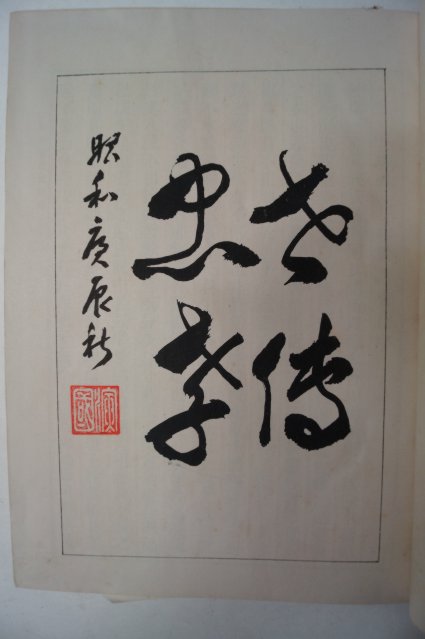 世傳
忠孝
昭和庚辰秋